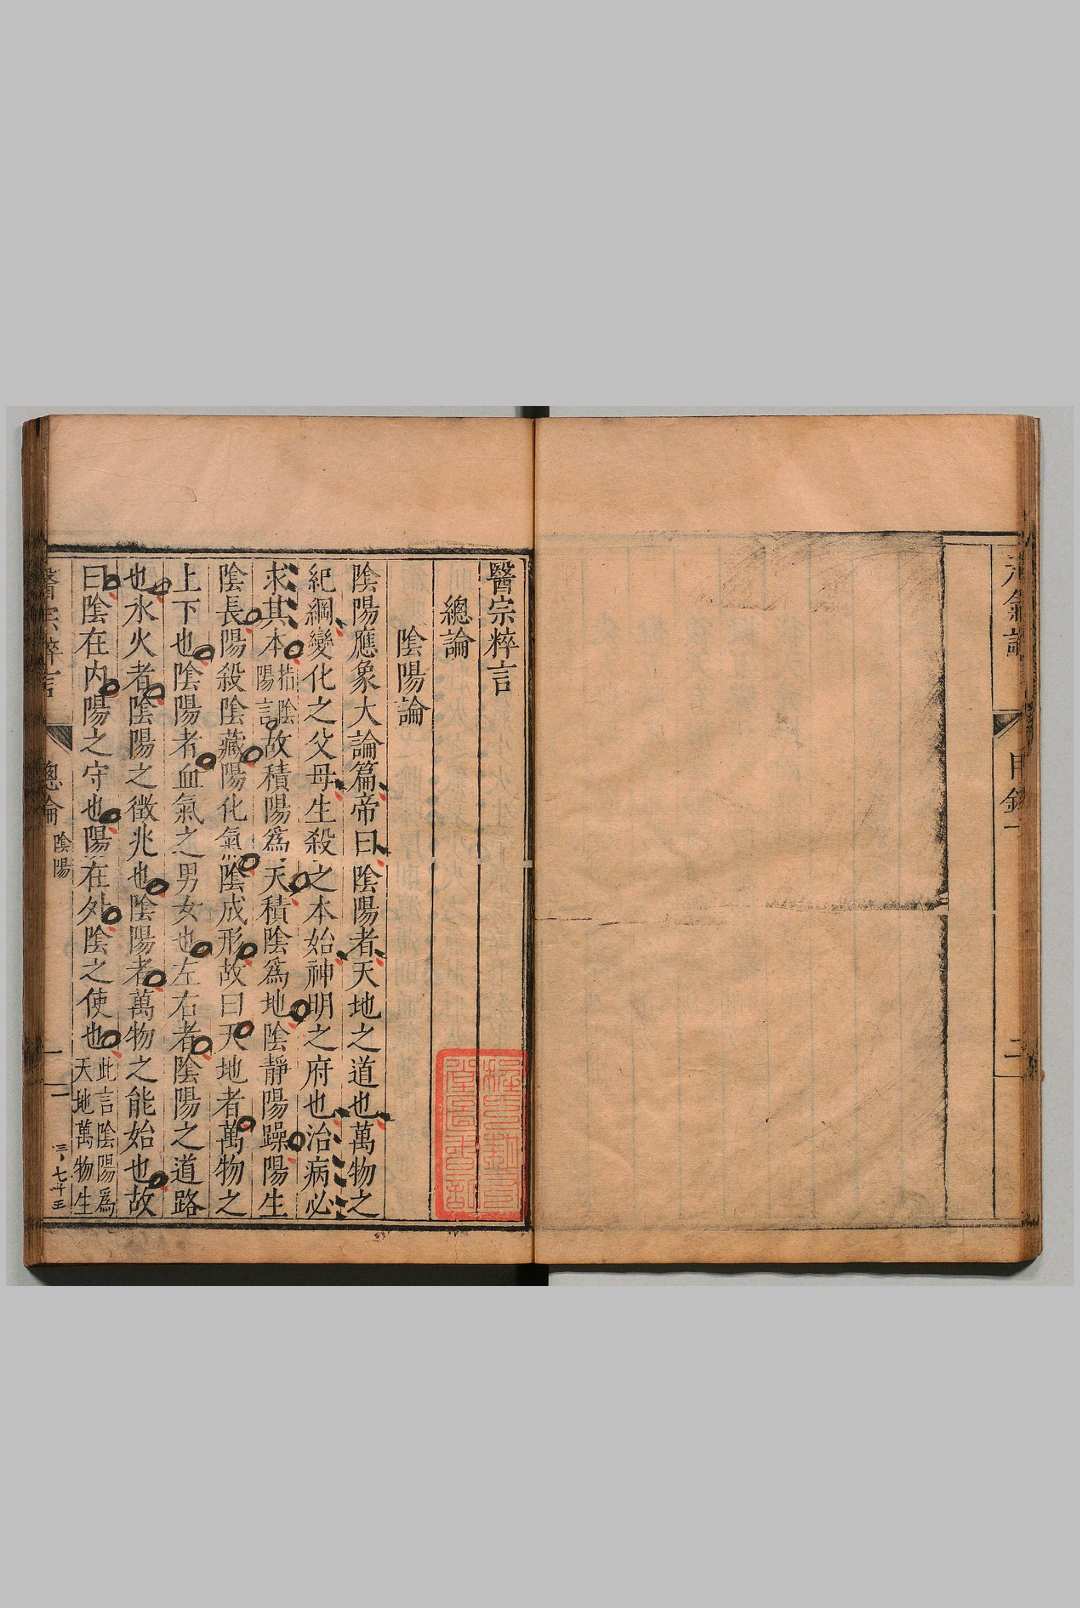 目錄
二
醫宗粹言
總論
陰陽論
陰陽應象大論篇帝曰陰陽者天地之道也萬物之
紀綱變化之父母生殺之本始神明之府也治病必
求其本指陰陽言故積陽為天積陰為地陰靜陽躁陽生
陰長陽殺陰藏陽化氣陰成形故曰天地者萬物之
上下也陰陽者血氣之男女也左右者陰陽之道路
也水火者陰陽之徵兆也陰陽者萬物之能始也故
曰陰在內陽之守也陽在外陰之使也此言陰陽為天地萬物生
醫宗粹言
總論
陰陽
一